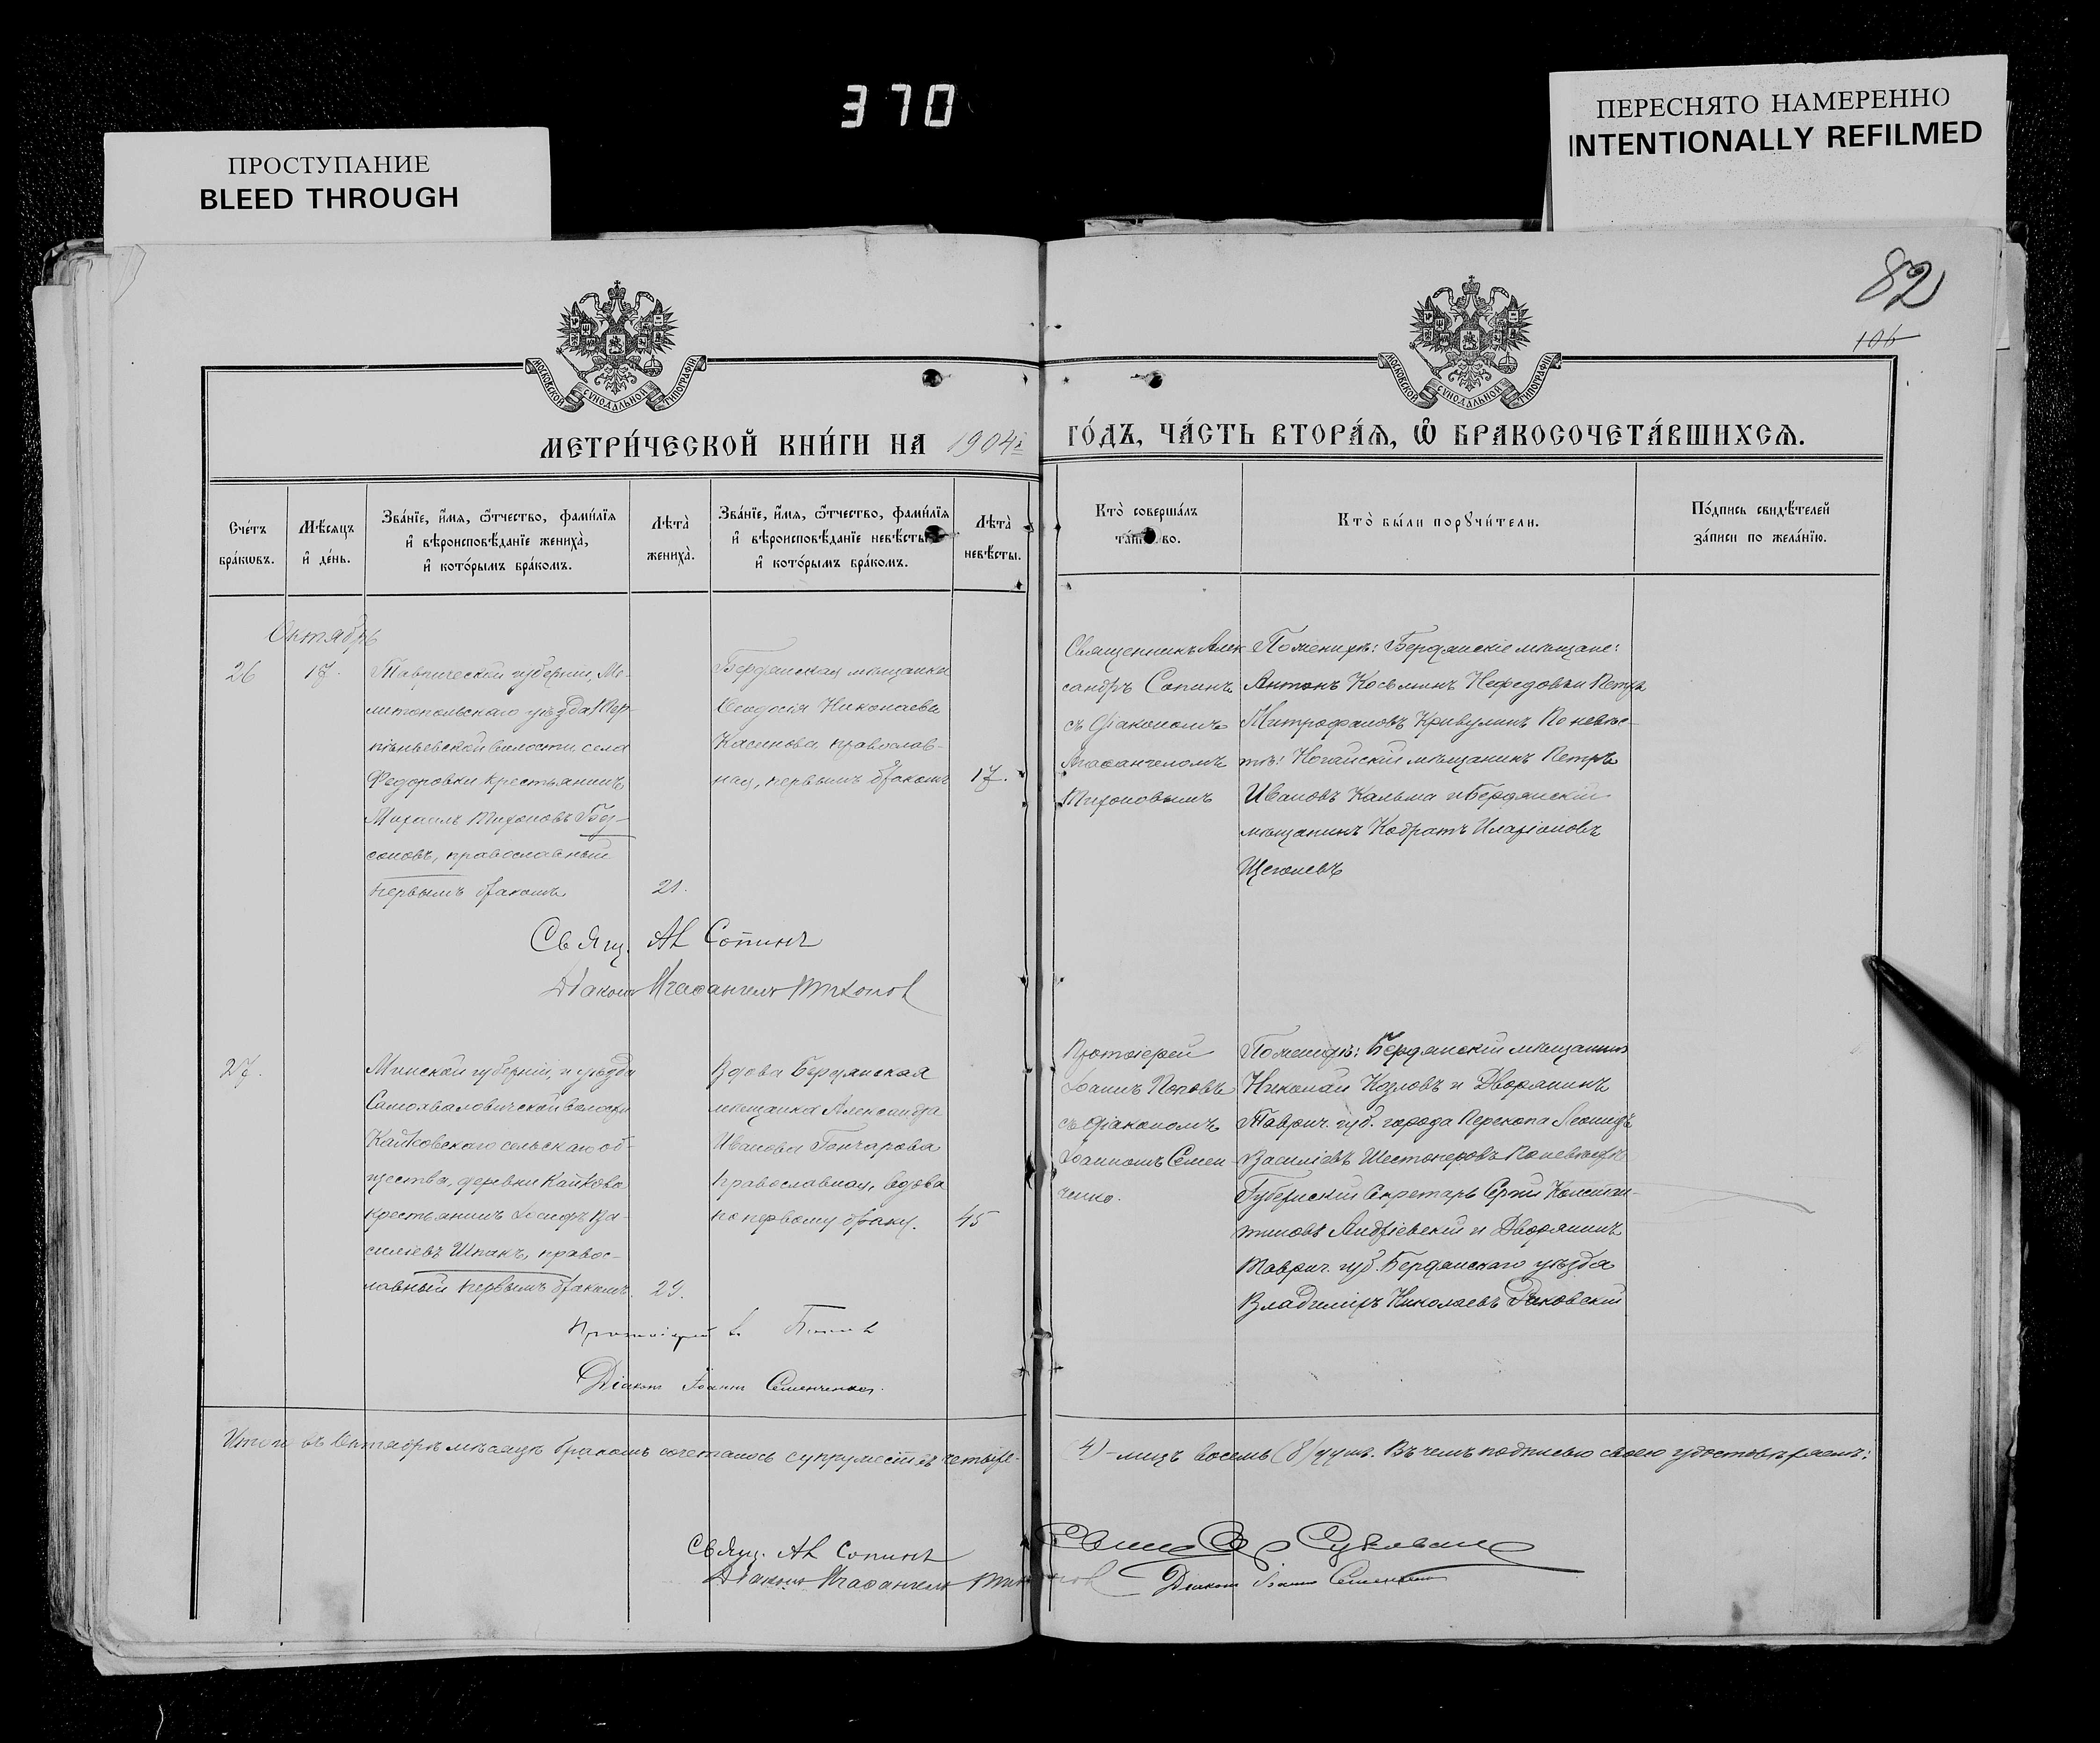 370
ПРОСТУПАНИЕ
BLEED THROUGH
ПЕРЕСНЯТО НАМЕРЕННО
INTENTIONALLY REFILMED
82
106
МОСКОВСКОЙ СѴНОДАЛЬНОЙ ТИПОГРАФІИ
МОСКОВСКОЙ СѴНОДАЛЬНОЙ ТИПОГРАФІИ
МЕТРИ́ЧЕСКОЙ КНИ́ГИ НА 1904й ГО́ДЪ, ЧА́СТЬ ВТОРА́Я, Ѽ БРАКОСОЧЕТА́ВШИХСЯ.
Сче́тъ бра́кωвъ.
Мѣ́сяцъ и҆ де́нь.
Зва́нїе, и҆́мя, ѻ҆́тчество, фами́лїя
и҆ вѣроисповѣ́данїе жениха̀,
и҆ кото́рымъ бра́комъ.
Лѣта̀ жениха̀.
Зва́нїе, и҆́мя, ѻ҆́тчество, фами́лїя
и҆ вѣроисповѣ́данїе невѣ́сты
и҆ кото́рымъ бра́комъ.
Лѣта̀ невѣ́сты.
Кто̀ соверша́лъ
та́инство.
Кто̀ бы́ли порꙋчи́тели.
По́дпись свидѣ́телей
за́писи по жела́нїю.
Октябрь
26
17.
Таврической губерніи, Ме-
литопольскаго уѣзда, Тер-
пѣньевской волости, села
Федоровки крестьянинъ
Михаилъ Тихоновъ
соновъ, православный
первымъ бракомъ
21.
Бердянская мѣщанка
Ѳеодосія Николаева
Касенова, православ-
ная, первымъ бракомъ
17.
Священникъ Алек-
сандръ Сопинъ
съ діакономъ
Агаѳангеломъ
Тихоновымъ
По женихѣ: Бердянскіе мѣщане:
Антонъ Косьминъ Нефедовъ и Петръ
Митрофановъ Кривулинъ По невѣс-
тѣ: Ногайскій мѣщанинъ Петръ
Ивановъ Кальма и Бердянскій
мѣщанинъ Кодратъ Иларіоновъ
Щеголевъ
Свящ. Ал Сопинъ
Діаконъ Агаѳангелъ Тихонов
27.
Минской губерніи, и уѣзда
Самохваловичской волости
Кайковскаго сельскаго об-
щества, деревни Кайково
крестьянинъ Іосифъ Ва-
силіевъ Шпакъ, правос-
лавный первымъ бракомъ.
29.
Вдова Бердянская
мѣщанка Александра
Иванова Гончарова
православная, вдова
по первому браку.
45
Протоіерей
Іоаннъ Поповъ
съ діакономъ
Іоанномъ Семен-
ченко.
По женихѣ: Бердянскій мѣщанинъ
Николай Козловъ и Дворянинъ
Таврич. губ. города Перекопа Леонидъ
Василіевъ Шестоперовъ По невѣстѣ
Губернскій Секретарь Сергій Констан-
тиновъ Андріевскій и Дворянинъ
Таврич. губ. Бердянскаго уѣзда
Владиміръ Николаевъ Раковскій
Протоіерей І. Попов
Діаконъ Іоаннъ Семенченко.
Итого въ Октябрѣ мѣсяцѣ бракомъ сочеталось супружествъ четыре- (4)-лицъ восемь (8) душъ. Въ чемъ подписью своею удостовѣряемъ:
Свящ. Ал Сопинъ
Діаконъ Агаѳангелъ Тихонов
Діаконъ Іоаннъ Семенченко